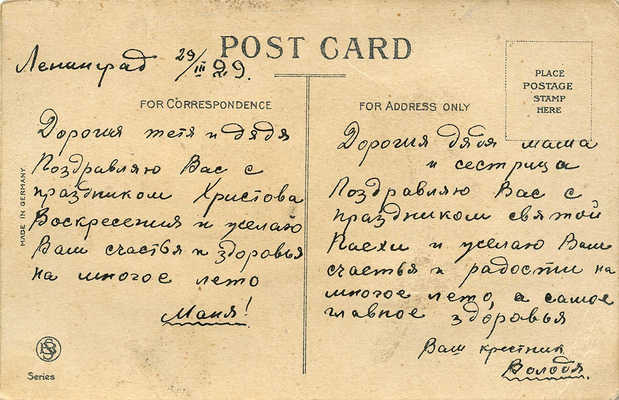 Ленинград 29/III 29.
POST CARD
PLACE
POSTAGE
STAMP
HERE
FOR CORRESPONDENCE
Дорогия тетя и дядя
Поздравляю Вас с
праздником Христова
Воскресения и желаю
Вам счастья и здоровья
на многое лето
Маня!
FOR ADDRESS ONLY
Дорогия дядя маша
и сестрица
Поздравляю Вас с
праздником святой
Пасхи и желаю Вам
счастья и радости на
многое лето, а самое
главное здоровья
Ваш крестник
Володя.
MADE IN GERMANY
Series